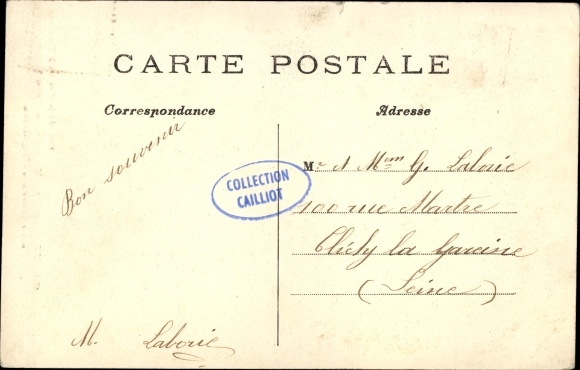 CARTE POSTALE
Correspondance
Adresse
Bon souvenir
M. Laborie
COLLECTION
CAILLIOT
Mr et Mme G. Laborie
100 rue Martre
Clichy la Garenne
(Seine)